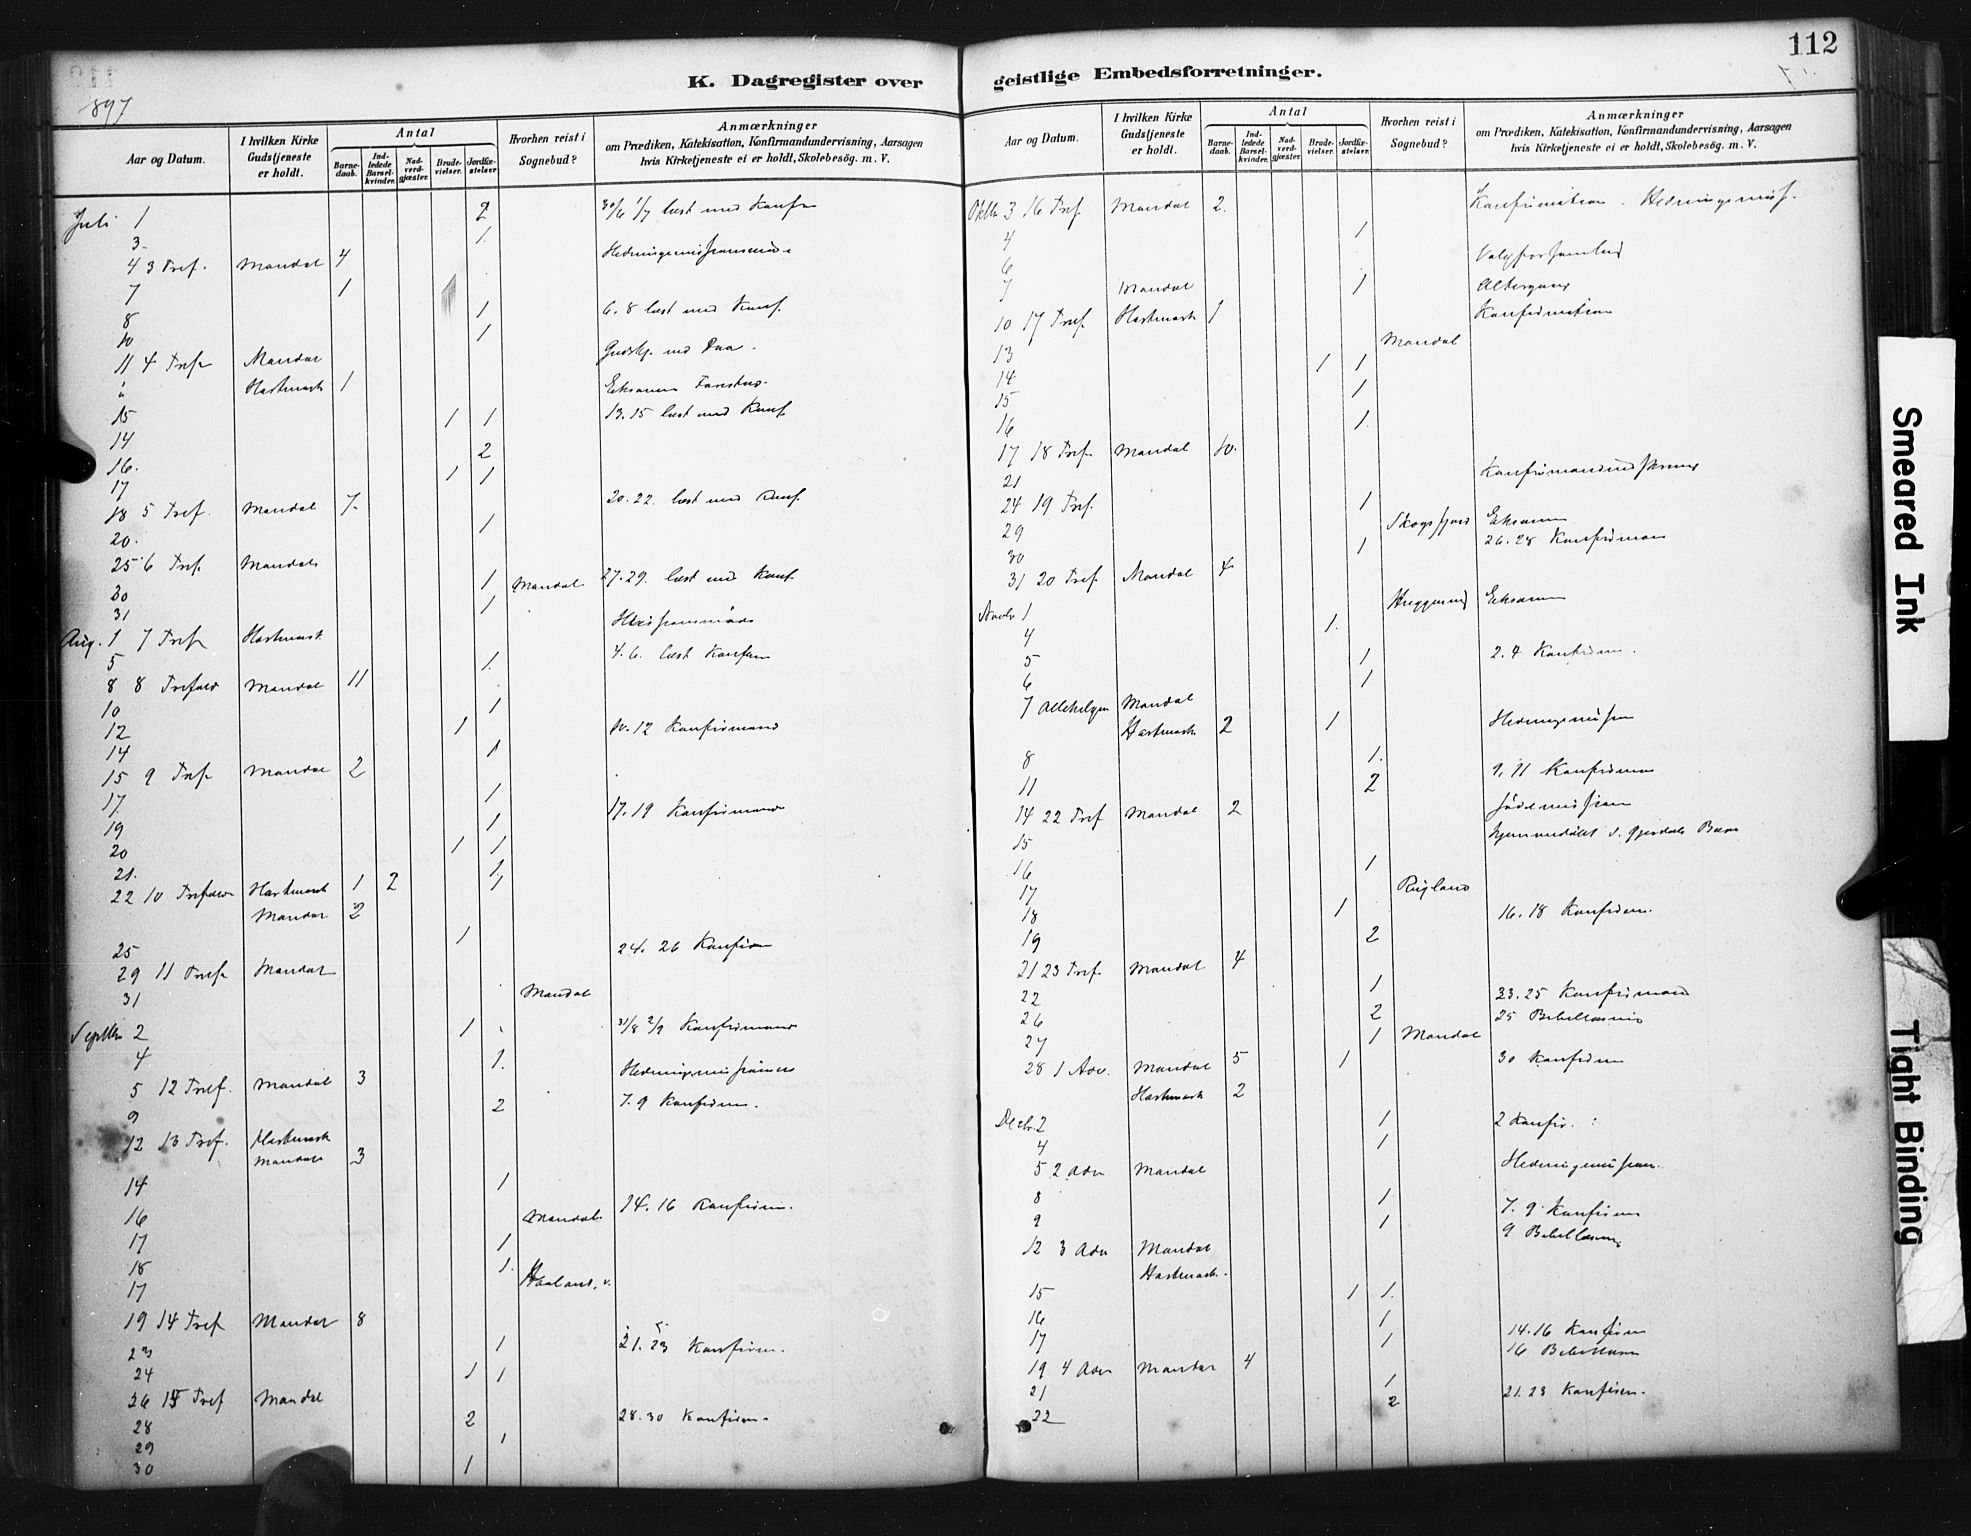 112
1897
K. Dagregister over
geistlige Embedsforretninger.
Aar og Datum.
I hvilken Kirke Gudstjeneste er holdt.
Antal
Barnedaab.
Indledede Barselkvinder.
Nadverdgjæster.
Brudevielser.
Jordfæstelser.
Hvorhen reist i Sognebud?
Anmærkninger
om Prædiken, Katekisation, Konfirmandundervisning, Aarsagen
hvis Kirketjeneste ei er holdt, Skolebesøg. m. V.
Juli 1 2 30/6 1/7 læst med Konf
3 1
4 3 Tref. Mandal 4
7 1
8 1 6. 8 læst med Konf.
10 1
11 4 Tref Mandal
Hartmark 1
15 1 1 13. 15 læst med Konf
14 2
16.
17 1 1
18 5 Tref. Mandal 7. 20. 22. læst med Konf.
20. 1
25 6 Tref. Mandal
30 1 Mandal 27. 29. læst med Konf.
31 1
Aug. 1 7 Tref Hartmark
5 1. 4. 6. læst Konfirm
8 8 Trefold Mandal 11
10 1
12 1 10. 12 Konfirmand
14 1
15 9 Tref Mandal 2
17. 1 17. 19 Konfirmand
19 1
20 1 1
21. 1
22 10 Trefold Hartmark 1 2 1
Mandal 2
25 1 24. 26 Konfirm
29 11 Tref Mandal
31 Mandal
Septbr 2 1 31/8 2/9 Konfirmand
4 1.
5 12 Tref. Mandal 3
9 2 7. 9 Konfirm.
12 13 Tref. Hartmark
Mandal 3
14 1
16 Mandal 14. 16 Konfirm.
17 1
18 1.
17 Haaland. v.
19 14 Tref Mandal 8
23 1 21. 23 Konfirm.
24 1 1
26 15 Tref Mandal
28 2 28. 30 Konfirm.
29 1
30 1
Aar og Datum.
I hvilken Kirke Gudstjeneste er holdt.
Antal
Barnedaab.
Indledede Barselkvinder.
Nadverdgjæster.
Brudevielser.
Jordfæstelser.
Hvorhen reist i Sognebud?
Anmærkninger
om Prædiken, Katekisation, Konfirmandundervisning, Aarsagen
hvis Kirketjeneste ei er holdt, Skolebesøg. m. V.
Oktbr 3 16 Tref Mandal 2. Konfirmation. Hedningemiss.
4 1
6
7 Mandal 1 Altergang
10 17 Tref Hartmark 1 Konfirmation
13 Mandal
14 1 1
15 1
16 1.
17 18 Tref Mandal 10.
21
24 19 Tref. 1
29 Skogsfjord Eksamen
30 1 26. 28 Konfirman
31 20 Tref Mandal 4
Novbr 1 Eksamen
4 1.
5 1 2. 4 Konfirm.
6 1
7 Allehelgen Mandal
Hartmark 2 1
8 1.
11 2 9. 11 Konfirman
14 22 Tref Mandal 2
15
16 1
17 Rugland
18 1 16. 18 Konfirm.
19 2
21 23 Tref. Mandal 4
22 1 23. 25 Konfirmand
26 2 25 Bibellæsning
27 1 Mandal
28 1 Adv. Mandal 5 1 30 Konfirm
Hartmark 2
Decbr. 2 1 2 Konfir.
4 1
5 2 Adv Mandal Hedningemission.
8 1 7. 9 Konfirm
9 1 9 Bibellæsning
12 3 Adv Mandal
Hartmark.
15 1 1.
16 1
17 1 14. 16 Konfirm
16 Bibellæsn
19 4 Adv Mandal 4
21 1 21. 23 Konfirm.
22 2
Smeared Ink
Tight Binding